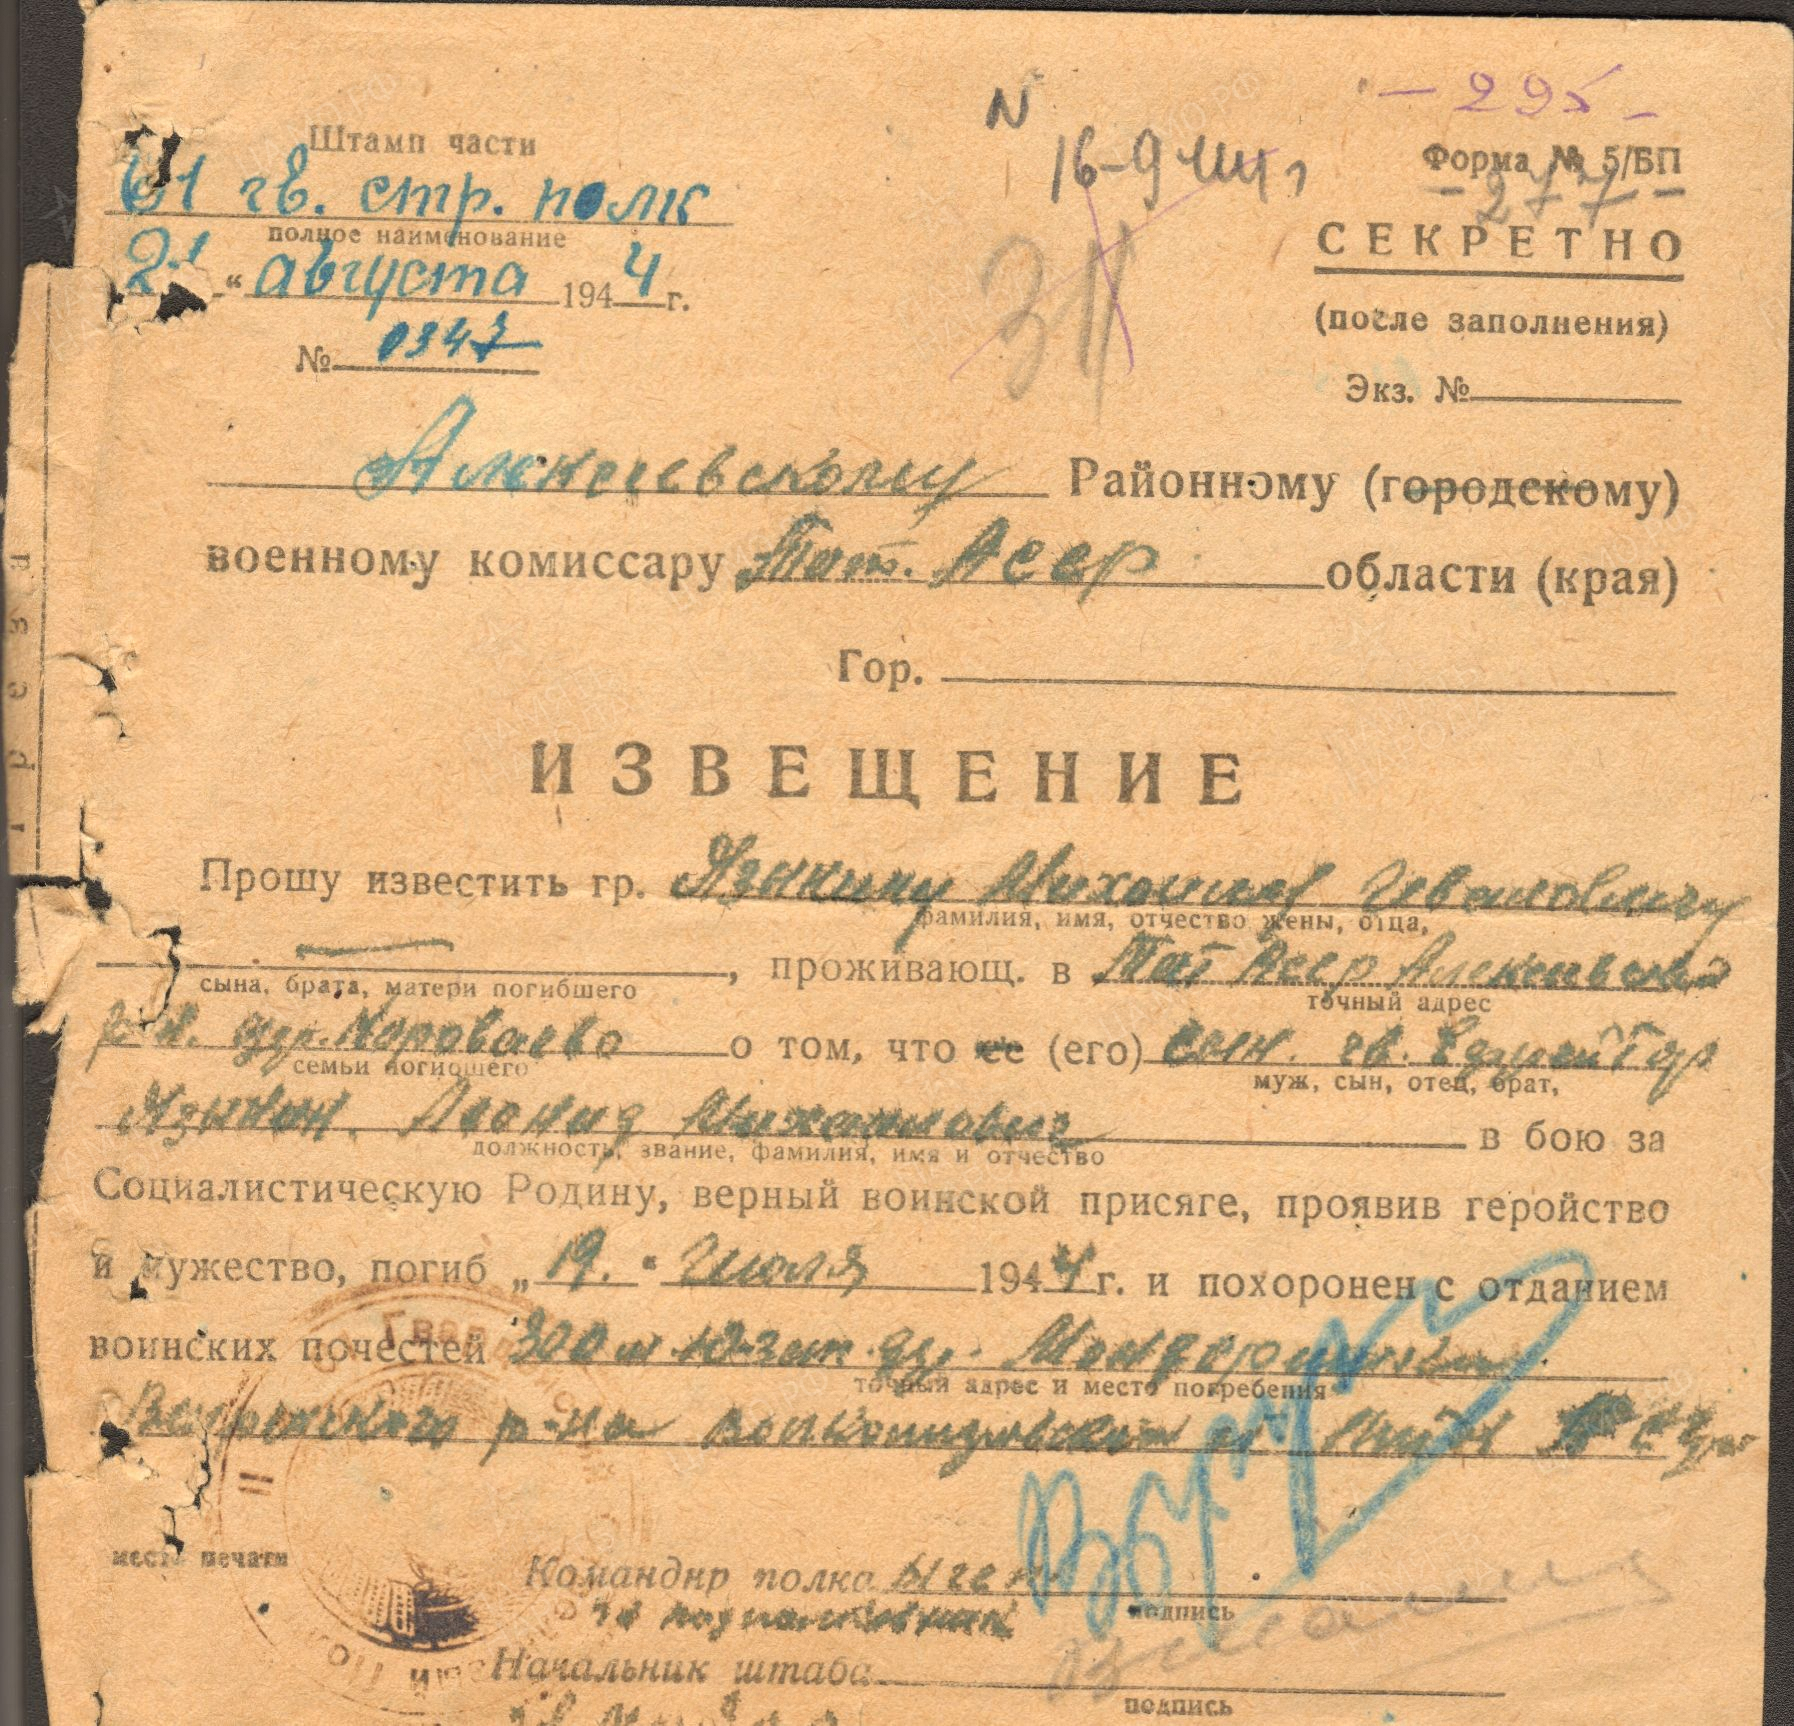 - 295 -
N
16-9
Штамп части
Форма № 5/БП
61 гв. стр. полк
- 277 -
полное наименование
СЕКРЕТНО
21 " августа 1944 г.
(после заполнения)
№ 0347
Экз. №
Алексеевскому Районному (городскому)
военному комиссару Тат. Асср области (края)
Гор.
ИЗВЕЩЕНИЕ
Прошу известить гр. Язынину Михаилу Ивановичу
фамилия, имя, отчество жены, отца,
, проживающ. в Тат Асср Алексеевский
сына, брата, матери погибшего
точный адрес
р-н. дер. о том, что ее (его) сын. гв. Ефрейтор
семьи погибшего
муж, сын, отец, брат,
Язынин. Леонид Михайлович в бою за
должность, звание, фамилия, имя и отчество
Социалистическую Родину, верный воинской присяге, проявив геройство
и мужество, погиб „ 19. " Июля 1944 г. и похоронен с отданием
воинских почестей 300 м дер.
точный адрес и место погребения
р-на
место печати
Командир полка
гв подполковник
подпись
Начальник штаба
подпись